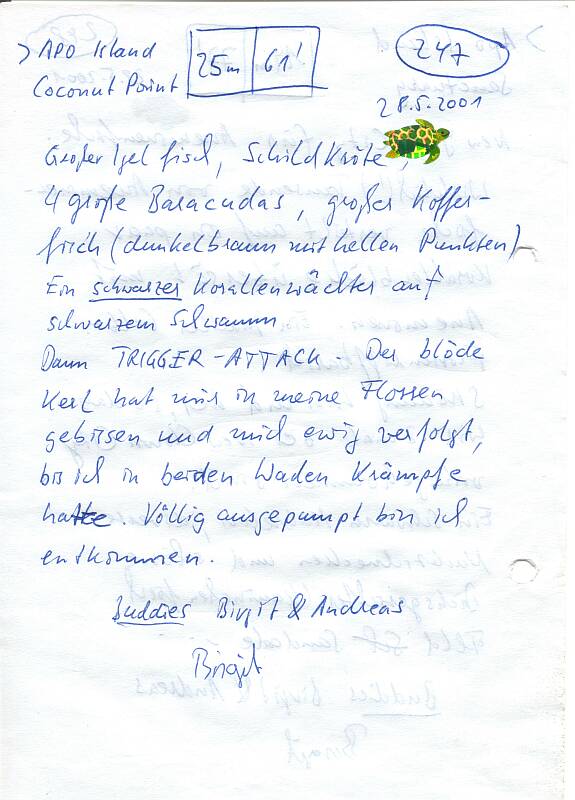 > APO Island
Coconut Point
25m
61'
247
28.5.2001
Großer Igelfisch, Schildkröte,
4 große Baracudas, großer Koffer-
fisch (dunkelbraun mit hellen Punkten)
Ein schwarzer Korallenwächter auf
schwarzem Schwamm
Dann TRIGGER-ATTACK. Der blöde
Kerl hat mir in meine Flossen
gebissen und mich ewig verfolgt,
bis ich in beiden Waden Krämpfe
hatte. Völlig ausgepumpt bin ich
entkommen.
Buddies Birgit & Andreas
Birgit